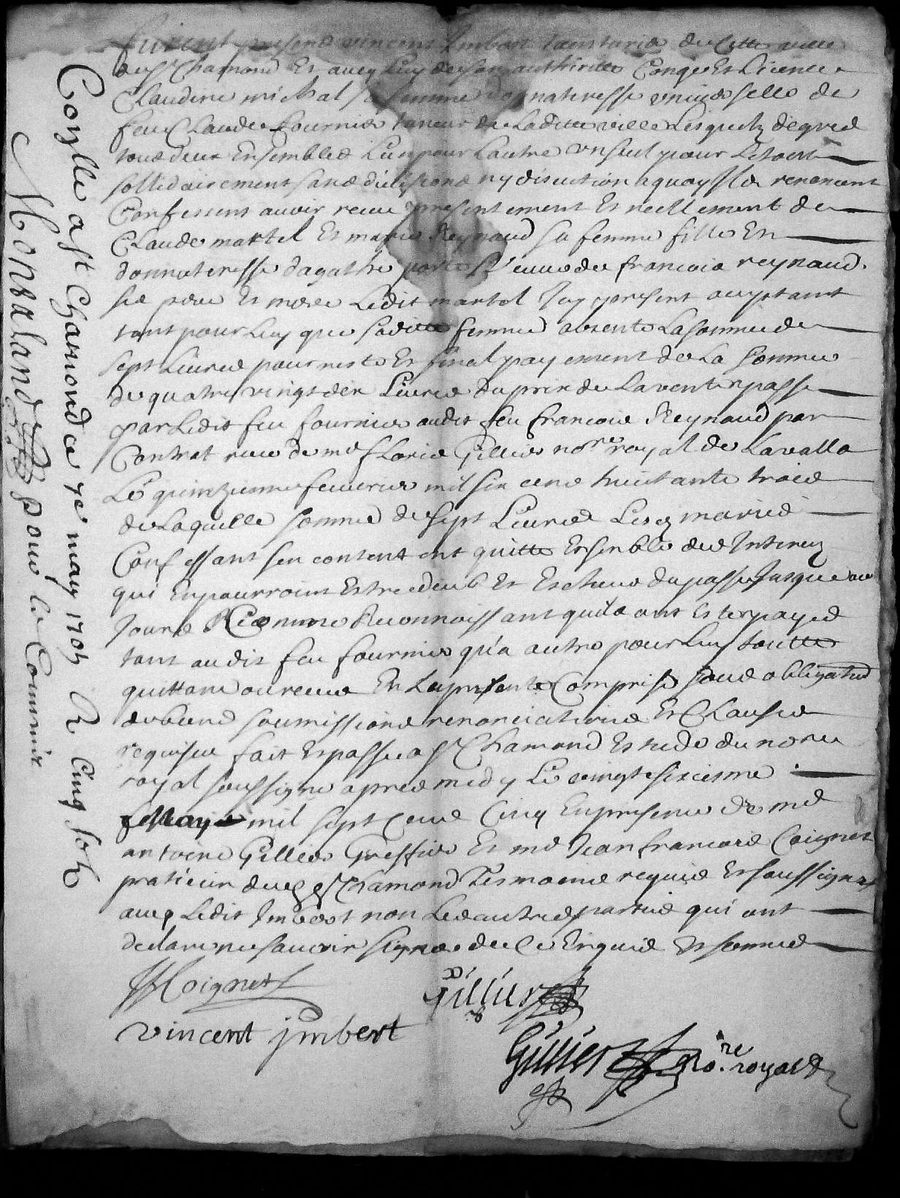 furent presens vincent Imbert de Cette ville
de St Chamond Et avecq luy de son authoritté Congé Et Licence
Claudine michal sa femme donnateresse universelle de
feu Claude fournie taneur de Laditte ville Lesquelz de gred
tous deux Ensembles L'un pour Lautre un seul pour Letout
sollidairement sans divisions ny discution a quoy renoncent
Confessent avoir receu presentement Et reellement de
Claude martel Et marie Reynaud sa femme fille Et
donnateresse dagathe veuve de francois reynaud
ses pere Et mere Ledit martel Icy present acceptant
tant pour Luy que saditte femme absente La somme de
sept Livres pour reste Et final payement de La somme
de quatre vingt dix Livres du prix de La vente passe
par Ledit feu fournie audit feu francois Reynaud par
Contrat receu de me florie Gillier nore royal de Lavalla
Le quinzieme feuvrier mil six cens huictante trois
de Laquelle somme de sept Livres Les mariés
Confessant sen content ont quitte Ensemble des Interez
qui En pourroint Estre deub Et Escheus du passe Jusques au
Jourd Comme Reconnoissant quils ont Este payes
tant audit feu fournie qu'a autre pour Luy toutte
quittance receue En La presente Comprise sans
soumissions renonciations Et Clauses
requises fait Et passe a St Chamond Estude du nore
royal soussigne apres midy Le vingt sixiesme
May mil sept Cens Cinq En presence de me
antoine Gillier Greffier Et me Jean francois Coignet
praticien dud St Chamond tesmoins requis Et soussignes
avecq Ledit Imbert non Les autres parties qui ont
declare ne savoir signer de Ce Enquis Et sommes
Coignet
Gillier
vincent jmbert
Gillier nore. royal
Conlle a St Chamond ce 7e may 1705 R cinq solz
Monsaland pour le Commis